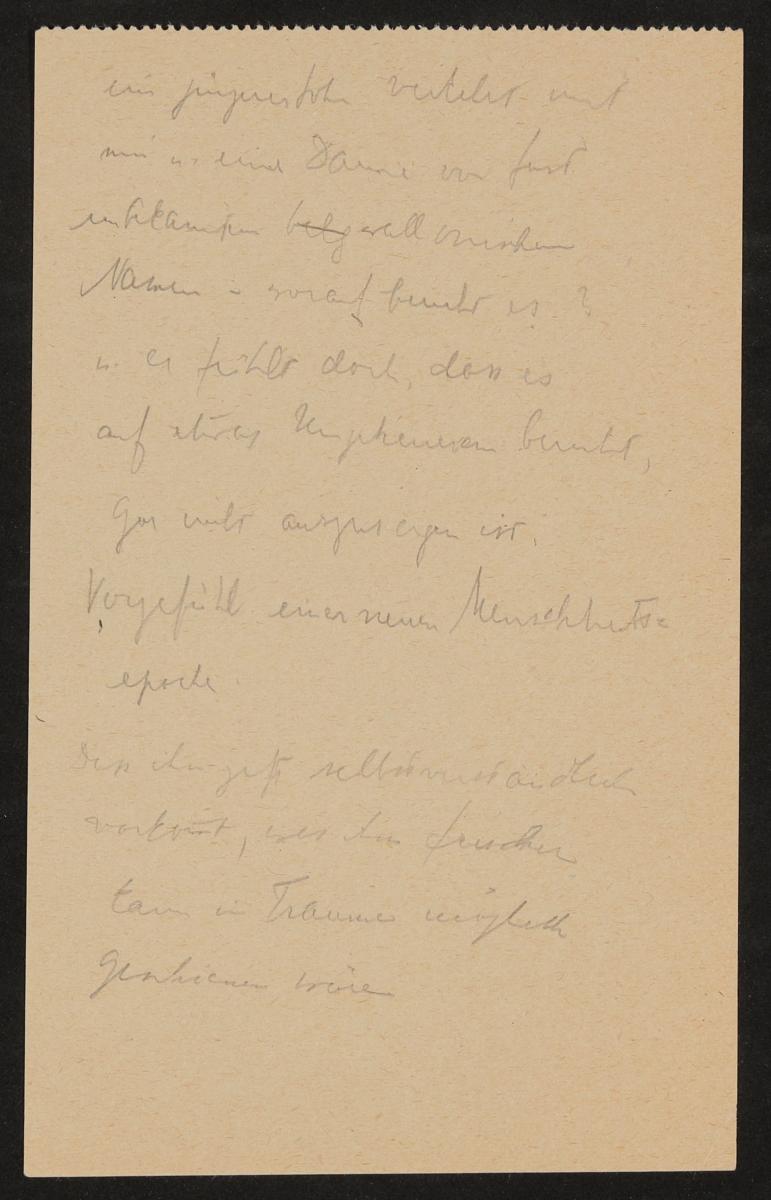 ein jüngerer Sohn verkehrt mit
mir u. eine Dame von fast
unbekanntem belg wallonischem
Namen – worauf beruht es?
u. er fühlt doch, dass es
auf etwas Ungeheuerem beruht,
Gar nicht auszusagen ist.
Vorgefühl einer neuen Menschheits=
epoche
Dass ihm jetzt selbstverständlich
vorkommt, was ihm früher
kaum im Traume möglich
geschienen wäre